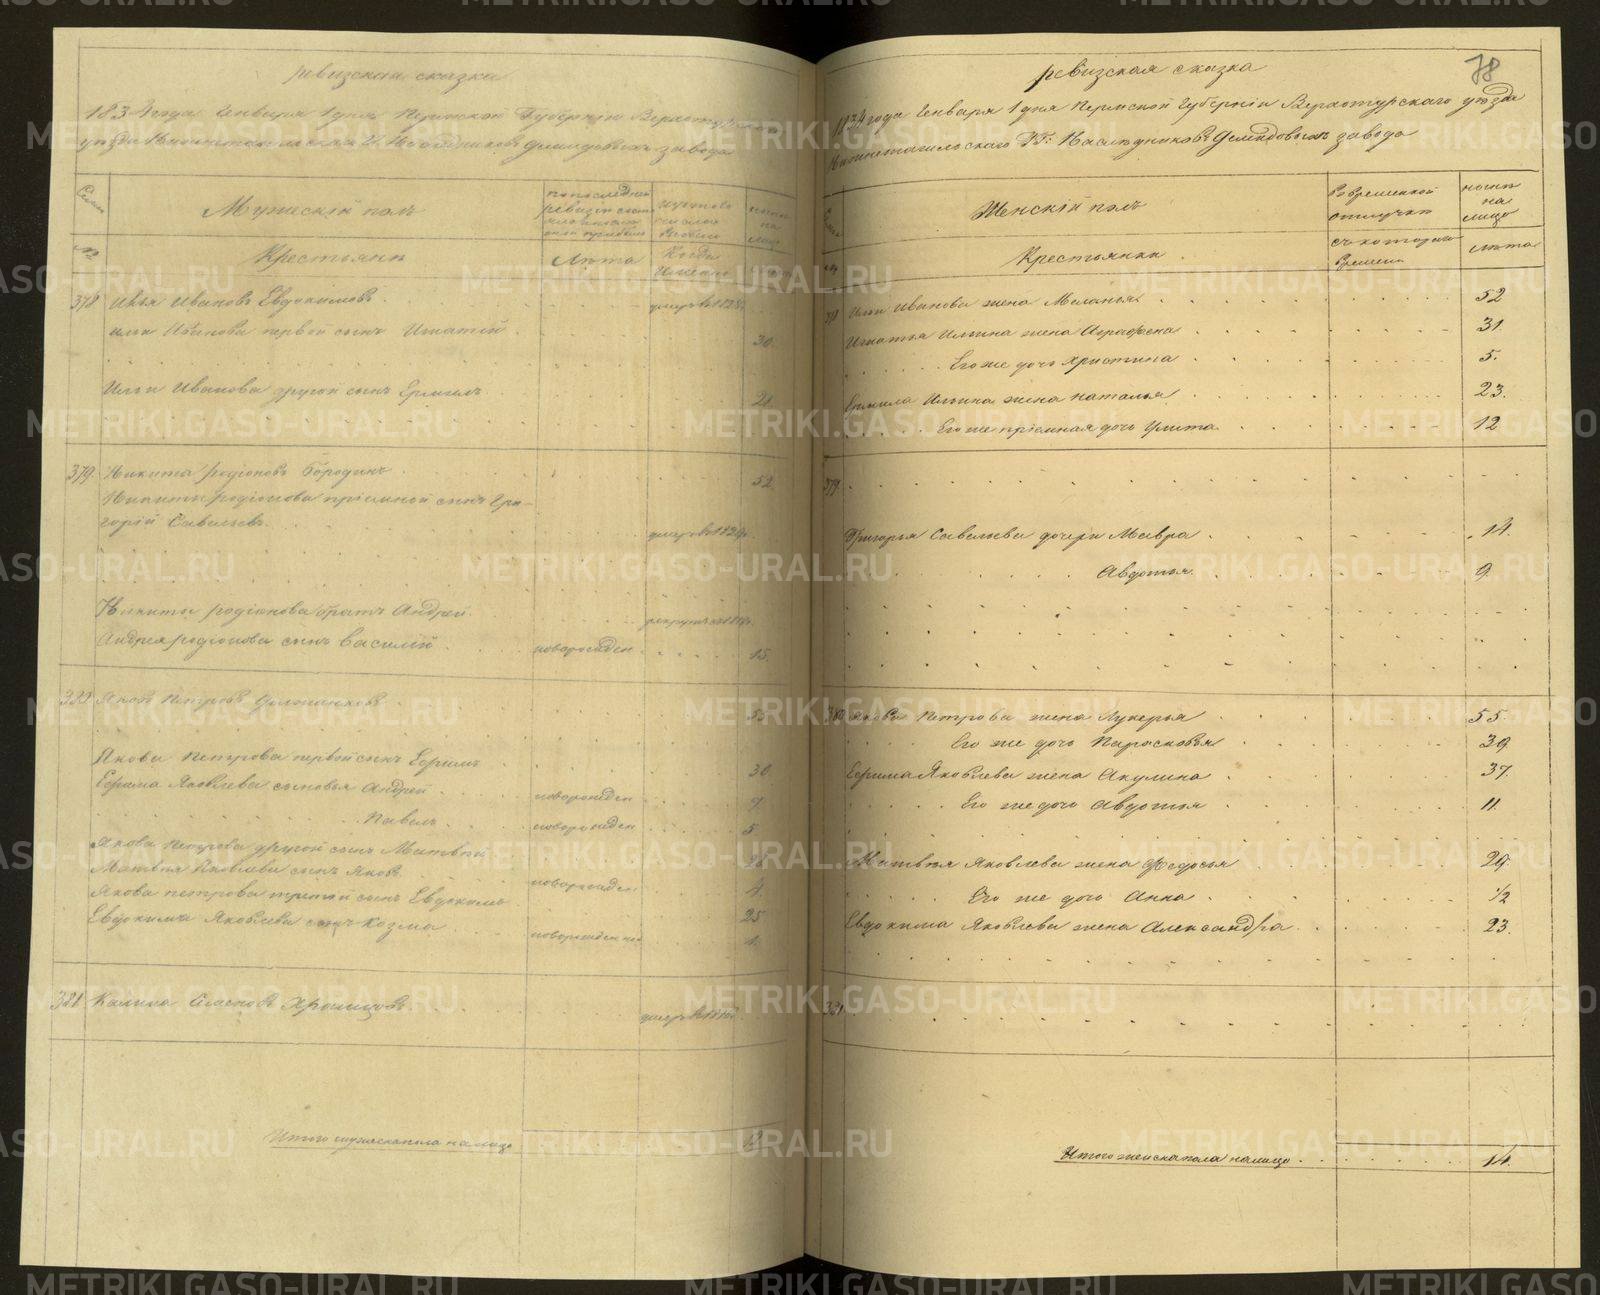 ревизская сказка
1834 года Генваря 1 дня Пермской Губернiи Верхотурскаго
уезда Нижнетагильскаго Гг. Наследниковъ Демидовыхъ завода
Семьи
Мужескiй полъ
по последней ревизiи
Изъ того числа выбыли
ныне на лицо
№
Крестьяне
Лета
Когда именно
Лета
378 Илья Ивановъ Евдокимовъ умеръ въ
Ильи Иванова первой сынъ Игнатiй 30
Ильи Иванова другой сынъ Ермилъ 21
379 Никита Родiоновъ Бородинъ 52
Никиты Родiонова прiемной сынъ Гри-
горiй Савельевъ умеръ въ
Никиты Родiонова братъ Андрей
Андрея Родiонова сынъ Василiй новорожден 15
380 Яковъ Петровъ
Якова Петрова первой сынъ Ефримъ 30
Ефрима Яковлева сыновья Андрей новорожден
Павелъ новорожден 5
Якова Петрова другой сынъ Матвей
Матвея Яковлева сынъ Яковъ новорожден
Якова Петрова третiй сынъ Евдокимъ 25
Евдокима Яковлева сынъ Козма новорожден 1
381 Калина умеръ въ
Итого мужеска пола на лицо
78
ревизская сказка
1834 года Генваря 1 дня Пермской Губернiи Верхотурскаго уезда
Нижнетагильскаго Гг. Наследниковъ Демидовыхъ завода
Женскiй полъ
Во временной отлучке
ныне на лицо
Крестьянки
съ котораго времени
лета
Ильи Иванова жена Меланья 52
Игнатья Ильина жена Аграфена 31
Его же дочь Христина 5
Ермила Ильина жена Наталья 23
Его же прiемная дочь Улита 12
379
Григорья Савельева дочери Мавра 14
Авдотья 9
380 Якова Петрова жена Лукерья 55
Его же дочь Парасковья 39
Ефрима Яковлева жена Акулина 37
Его же дочь Авдотья 11
Матвея Яковлева жена Федосья 29
Его же дочь Анна 1/2
Евдокима Яковлева жена Александра 23
381
Итого женска пола на лицо 14
METRIKI.GASO-URAL.RU